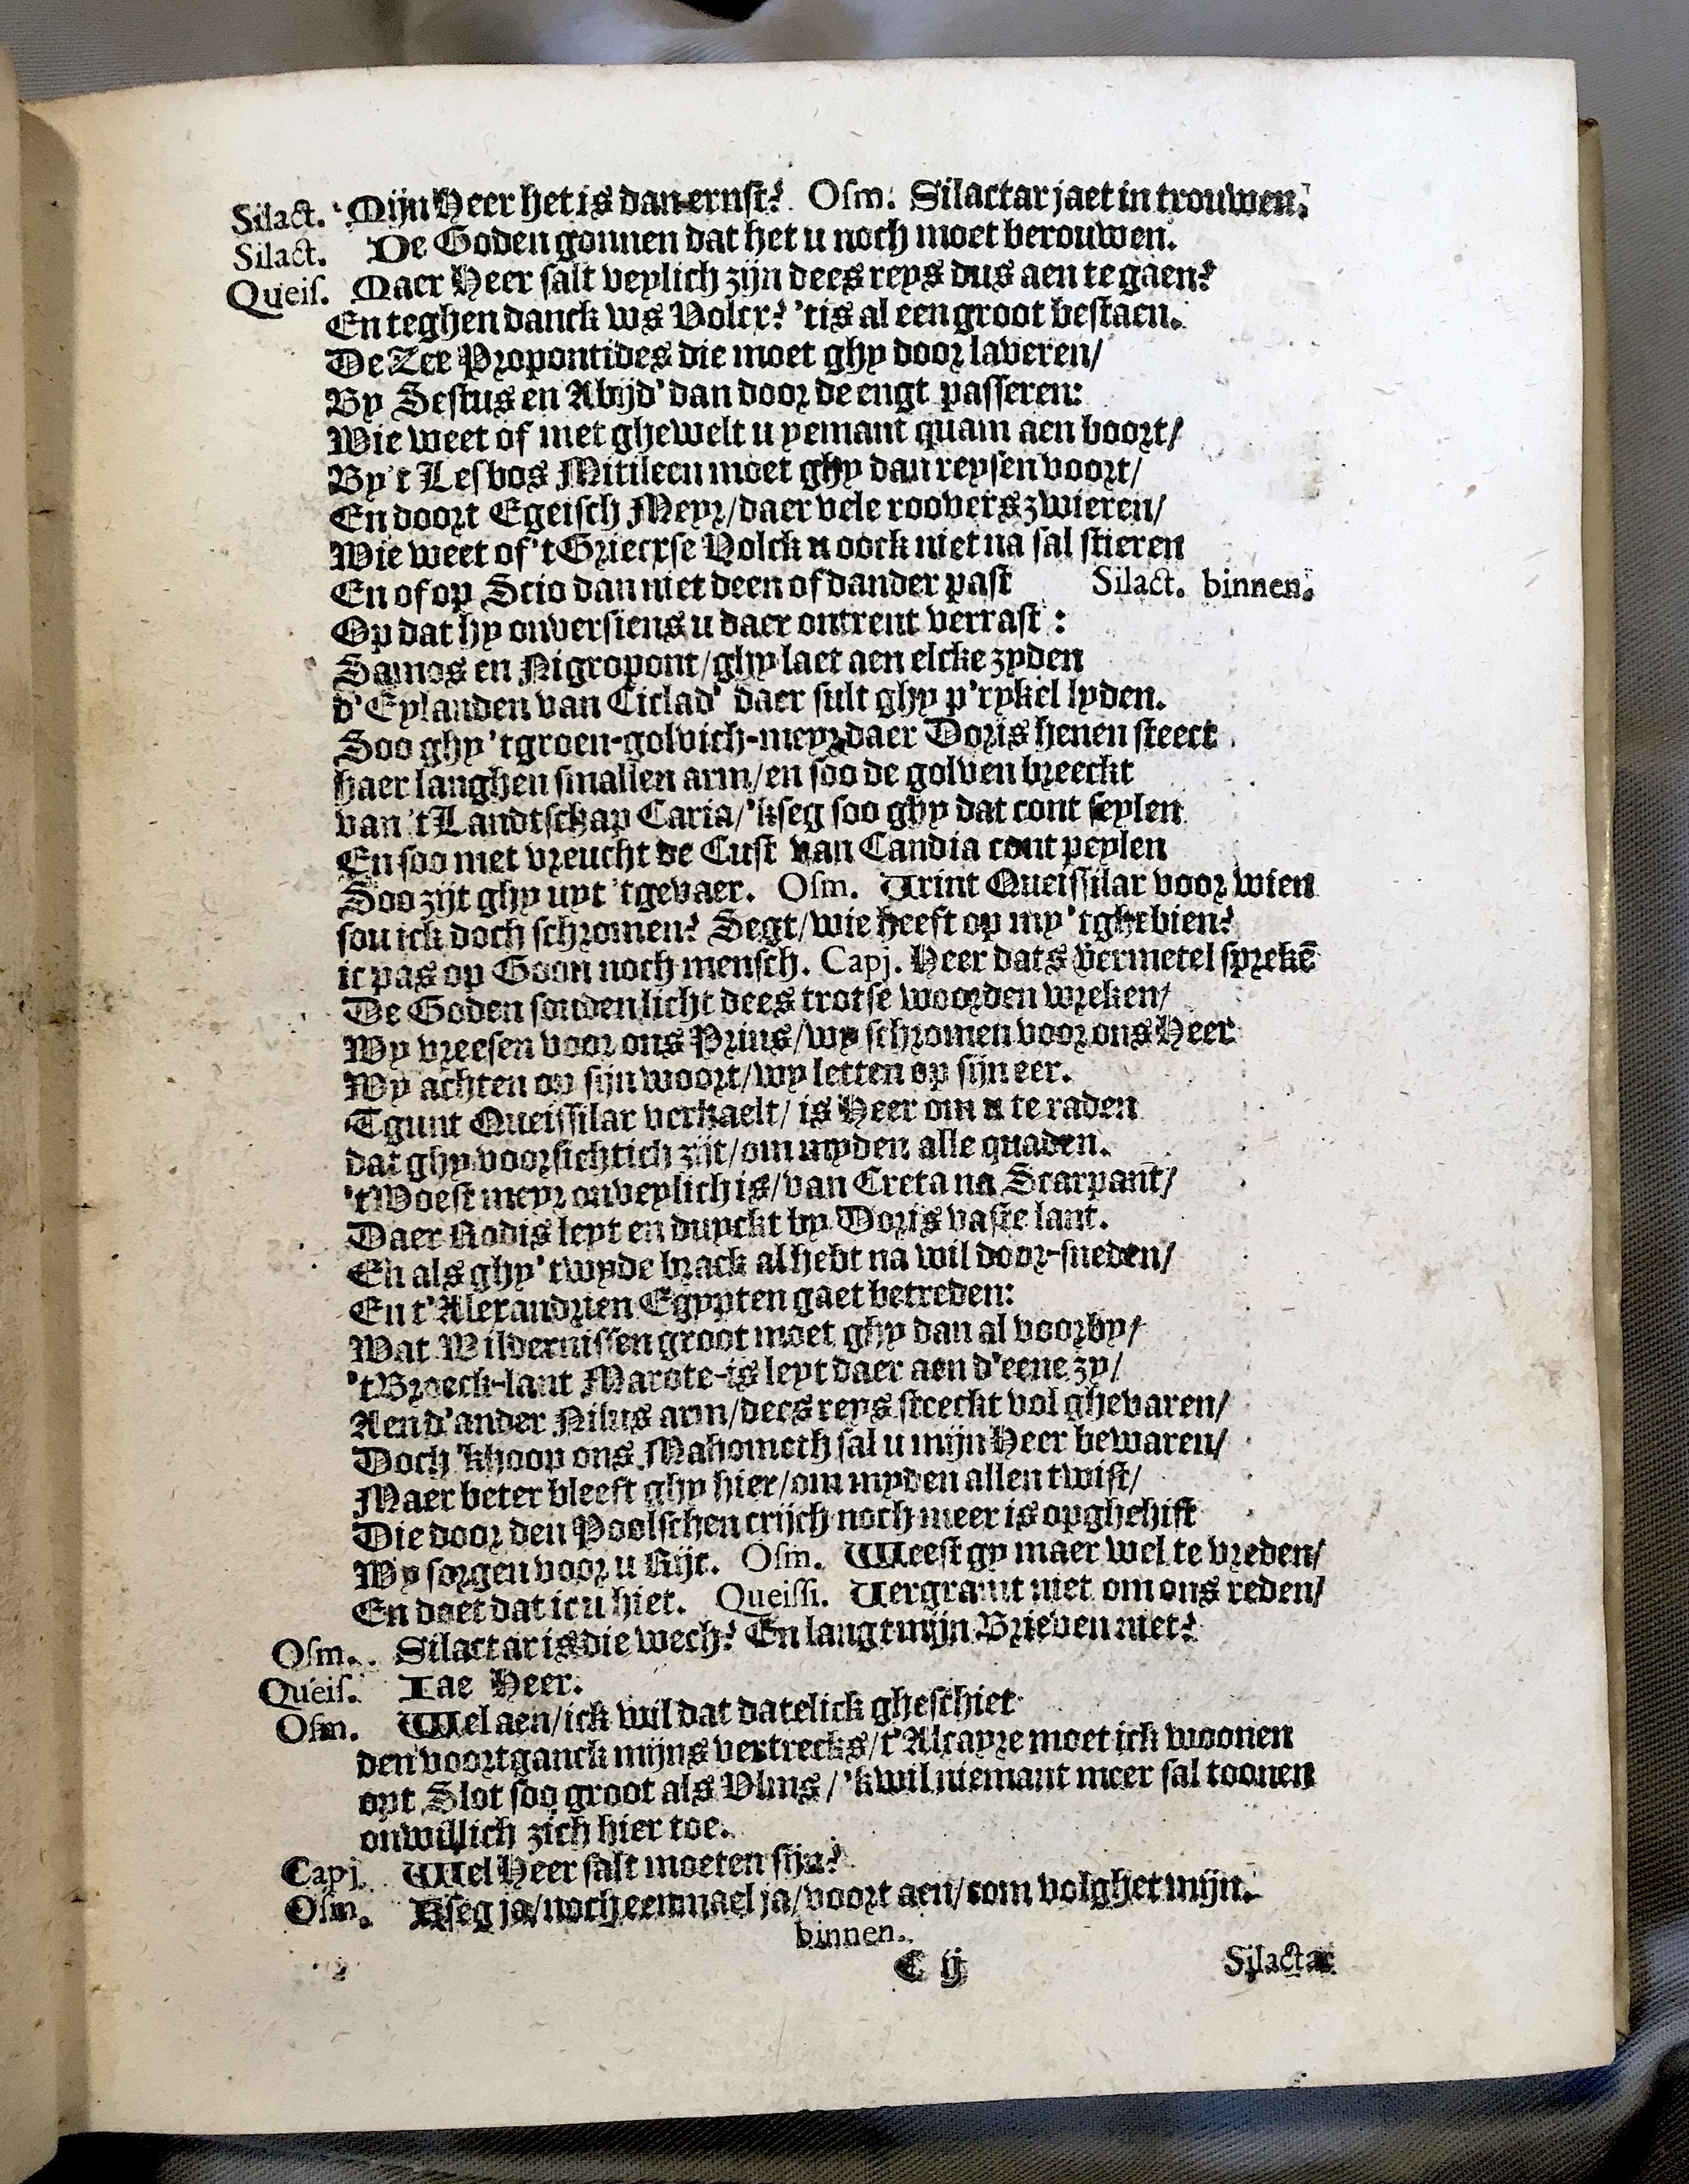 Silact. Mijn Heer het is dan ernst? Osm. Silactar jaet in trouwen.
Silact. De Goden gonnen dat het u noch moet berouwen.
Queis. Maer Heer salt veylich zijn dees reys dus aen te gaen?
En teghen danck ws Volcx? 'tis al een groot bestaen.
De Zee Propontides die moet ghy door laveren/
By Sestus en Abijd' dan door de engt passeren:
Wie weet of met ghewelt u yemant quam aen boort/
By 't Lesbos Mitileen moet ghy dan reysen voort/
En doort Egeisch Meyr/daer vele roovers zwieren/
Wie weet of 't Griecxse Volck u oock niet na sal stieren
En of op Scio dan niet deen of dander past Silact. binnen.
Op dat hy onversiens u daer ontrent verrast :
Samos en Nigropont/ghy laet aen elcke zyden
d'Eylanden van Ciclad' daer sult ghy p'rykel lyden.
Soo ghy 't groen-golvich-meyr daer Doris henen steect
haer langhen smallen arm/en soo de golven breeckt
van 't Landtschap Caria/'kseg soo ghy dat cont seylen
En soo met vreucht de Cust van Candia cont peylen
Soo zijt ghy uyt 'tgevaer. Osm. Trint Queissilar voor wien
sou ick doch schromen? Segt/wie heeft op my 'tghebien?
ic pas op Goon noch mensch. Capj. Heer dats vermetel sprekē
De Goden souden licht dees trotse woorden wreken/
Wy vreesen voor ons Prins/wy schromen voor ons Heer
Wy achten op sijn woort/wy letten op sijn eer.
Tgunt Queissilar verhaelt/ is Heer om u te raden
dat ghy voorsichtich zijt/om myden alle quaden.
't Woest meyr onveylich is/van Creta na Scarpant/
Daer Rodis leyt en duyckt by Doris vaste lant.
En als ghy 't wyde brack al hebt na wil door-sneden/
En t'Alexandrien Egypten gaet betreden:
Wat Wildernissen groot moet ghy dan al voorby/
't Broeck-lant Marote-is leyt daer aen d'eene zy/
Aen d'ander Nilus arm/dees reys steeckt vol ghevaren/
Doch 'khoop ons Mahometh sal u mijn Heer bewaren/
Maer beter bleeft ghy hier/om myden allen twist/
Die door den Poolschen crijch noch meer is opghehist
Wy sorgen voor u Rijc. Osm. Weest gy maer wel te vreden/
En doet dat ic u hiet. Queissi. Vergramt niet om ons reden/
Osm. Silactar is die wech? En langt mijn Brieven niet?
Queis. Iae Heer.
Osm. Wel aen/ick wil dat datelick gheschiet
den voortganck mijns vertrecks/t'Alcayre moet ick woonen
opt Slot soo groot als Vlms/'kwil niemant meer sal toonen
onwillich zich hier toe.
Capj. Wel Heer salt moeten sijn?
Osm. Kseg ja/noch eenmael ja/voort aen/com volghet mijn.
binnen.
C ij Silactar